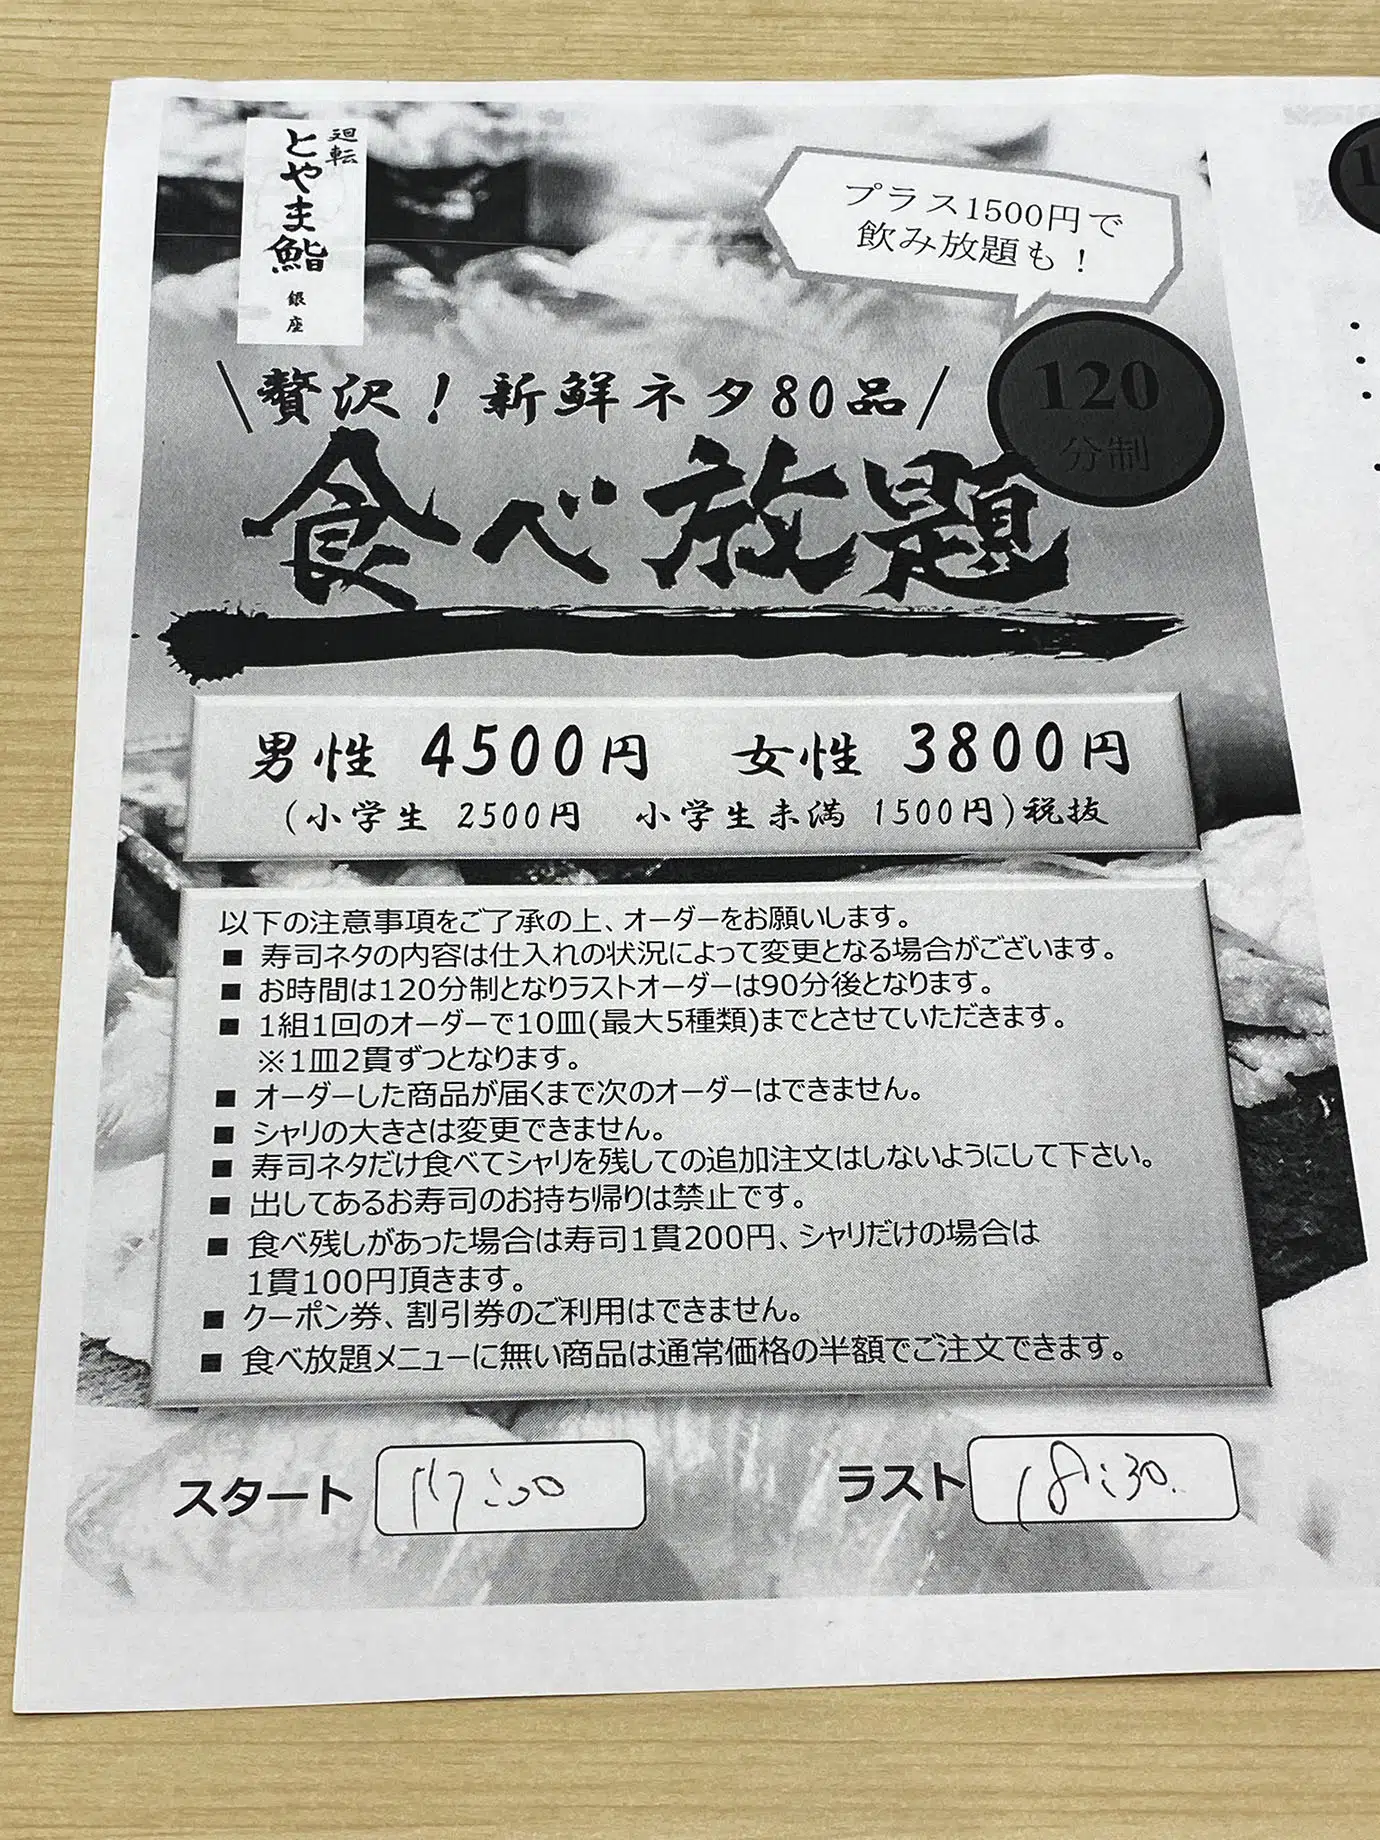 廻転
とやま鮨
銀座
プラス1500円で
飲み放題も！
120
分制
\贅沢！新鮮ネタ80品/
食べ放題
男性 4500円 女性 3800円
(小学生 2500円 小学生未満 1500円)税抜
以下の注意事項をご了承の上、オーダーをお願いします。
■ 寿司ネタの内容は仕入れの状況によって変更となる場合がございます。
■ お時間は120分制となりラストオーダーは90分後となります。
■ 1組1回のオーダーで10皿(最大5種類)までとさせていただきます。
※1皿2貫ずつとなります。
■ オーダーした商品が届くまで次のオーダーはできません。
■ シャリの大きさは変更できません。
■ 寿司ネタだけ食べてシャリを残しての追加注文はしないようにして下さい。
■ 出してあるお寿司のお持ち帰りは禁止です。
■ 食べ残しがあった場合は寿司1貫200円、シャリだけの場合は
1貫100円頂きます。
■ クーポン券、割引券のご利用はできません。
■ 食べ放題メニューに無い商品は通常価格の半額でご注文できます。
スタート 17:00 ラスト 18:30.